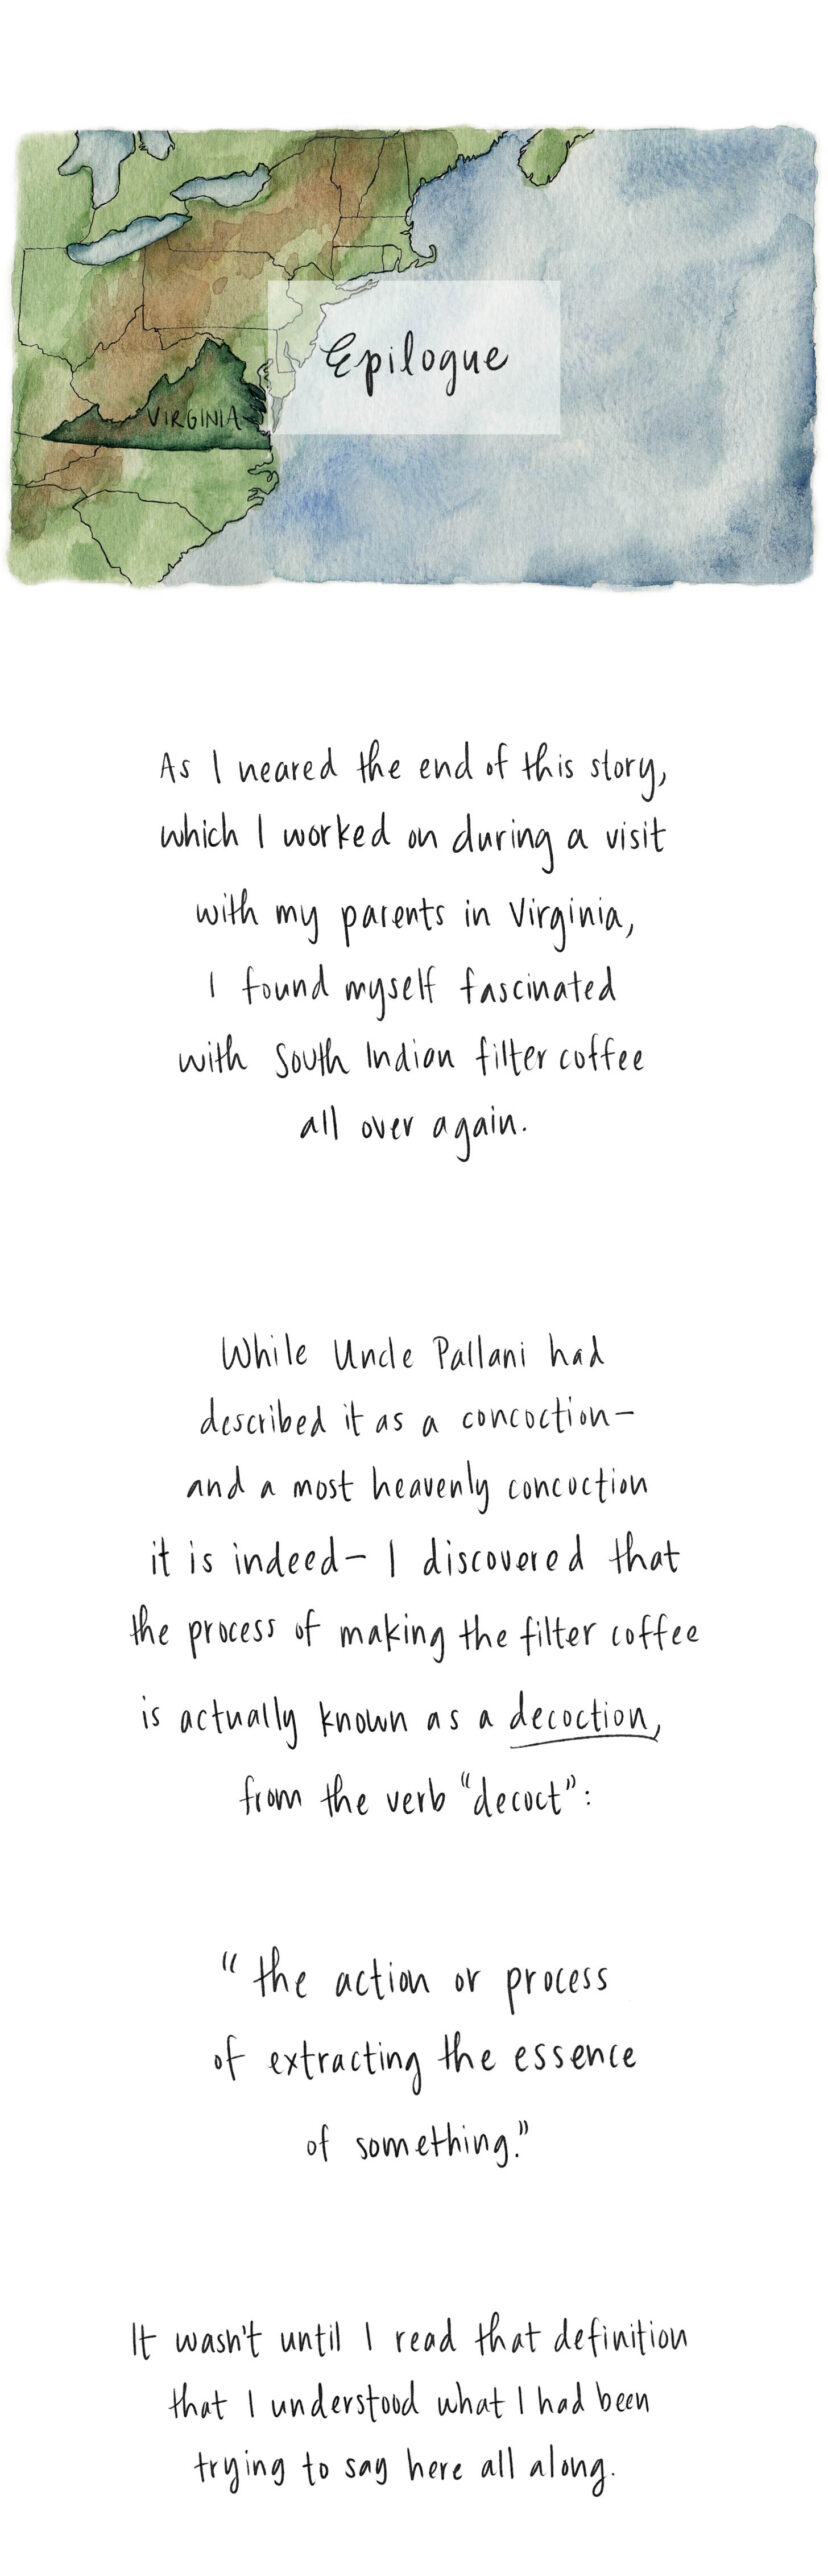 Epilogue
VIRGINIA
As I neared the end of this story,
which I worked on during a visit
with my parents in Virginia,
I found myself fascinated
with South Indian filter coffee
all over again.
While Uncle Pallani had
described it as a concoction—
and a most heavenly concoction
it is indeed— I discovered that
the process of making the filter coffee
is actually known as a decoction,
from the verb "decoct":
"the action or process
of extracting the essence
of something."
It wasn't until I read that definition
that I understood what I had been
trying to say here all along.